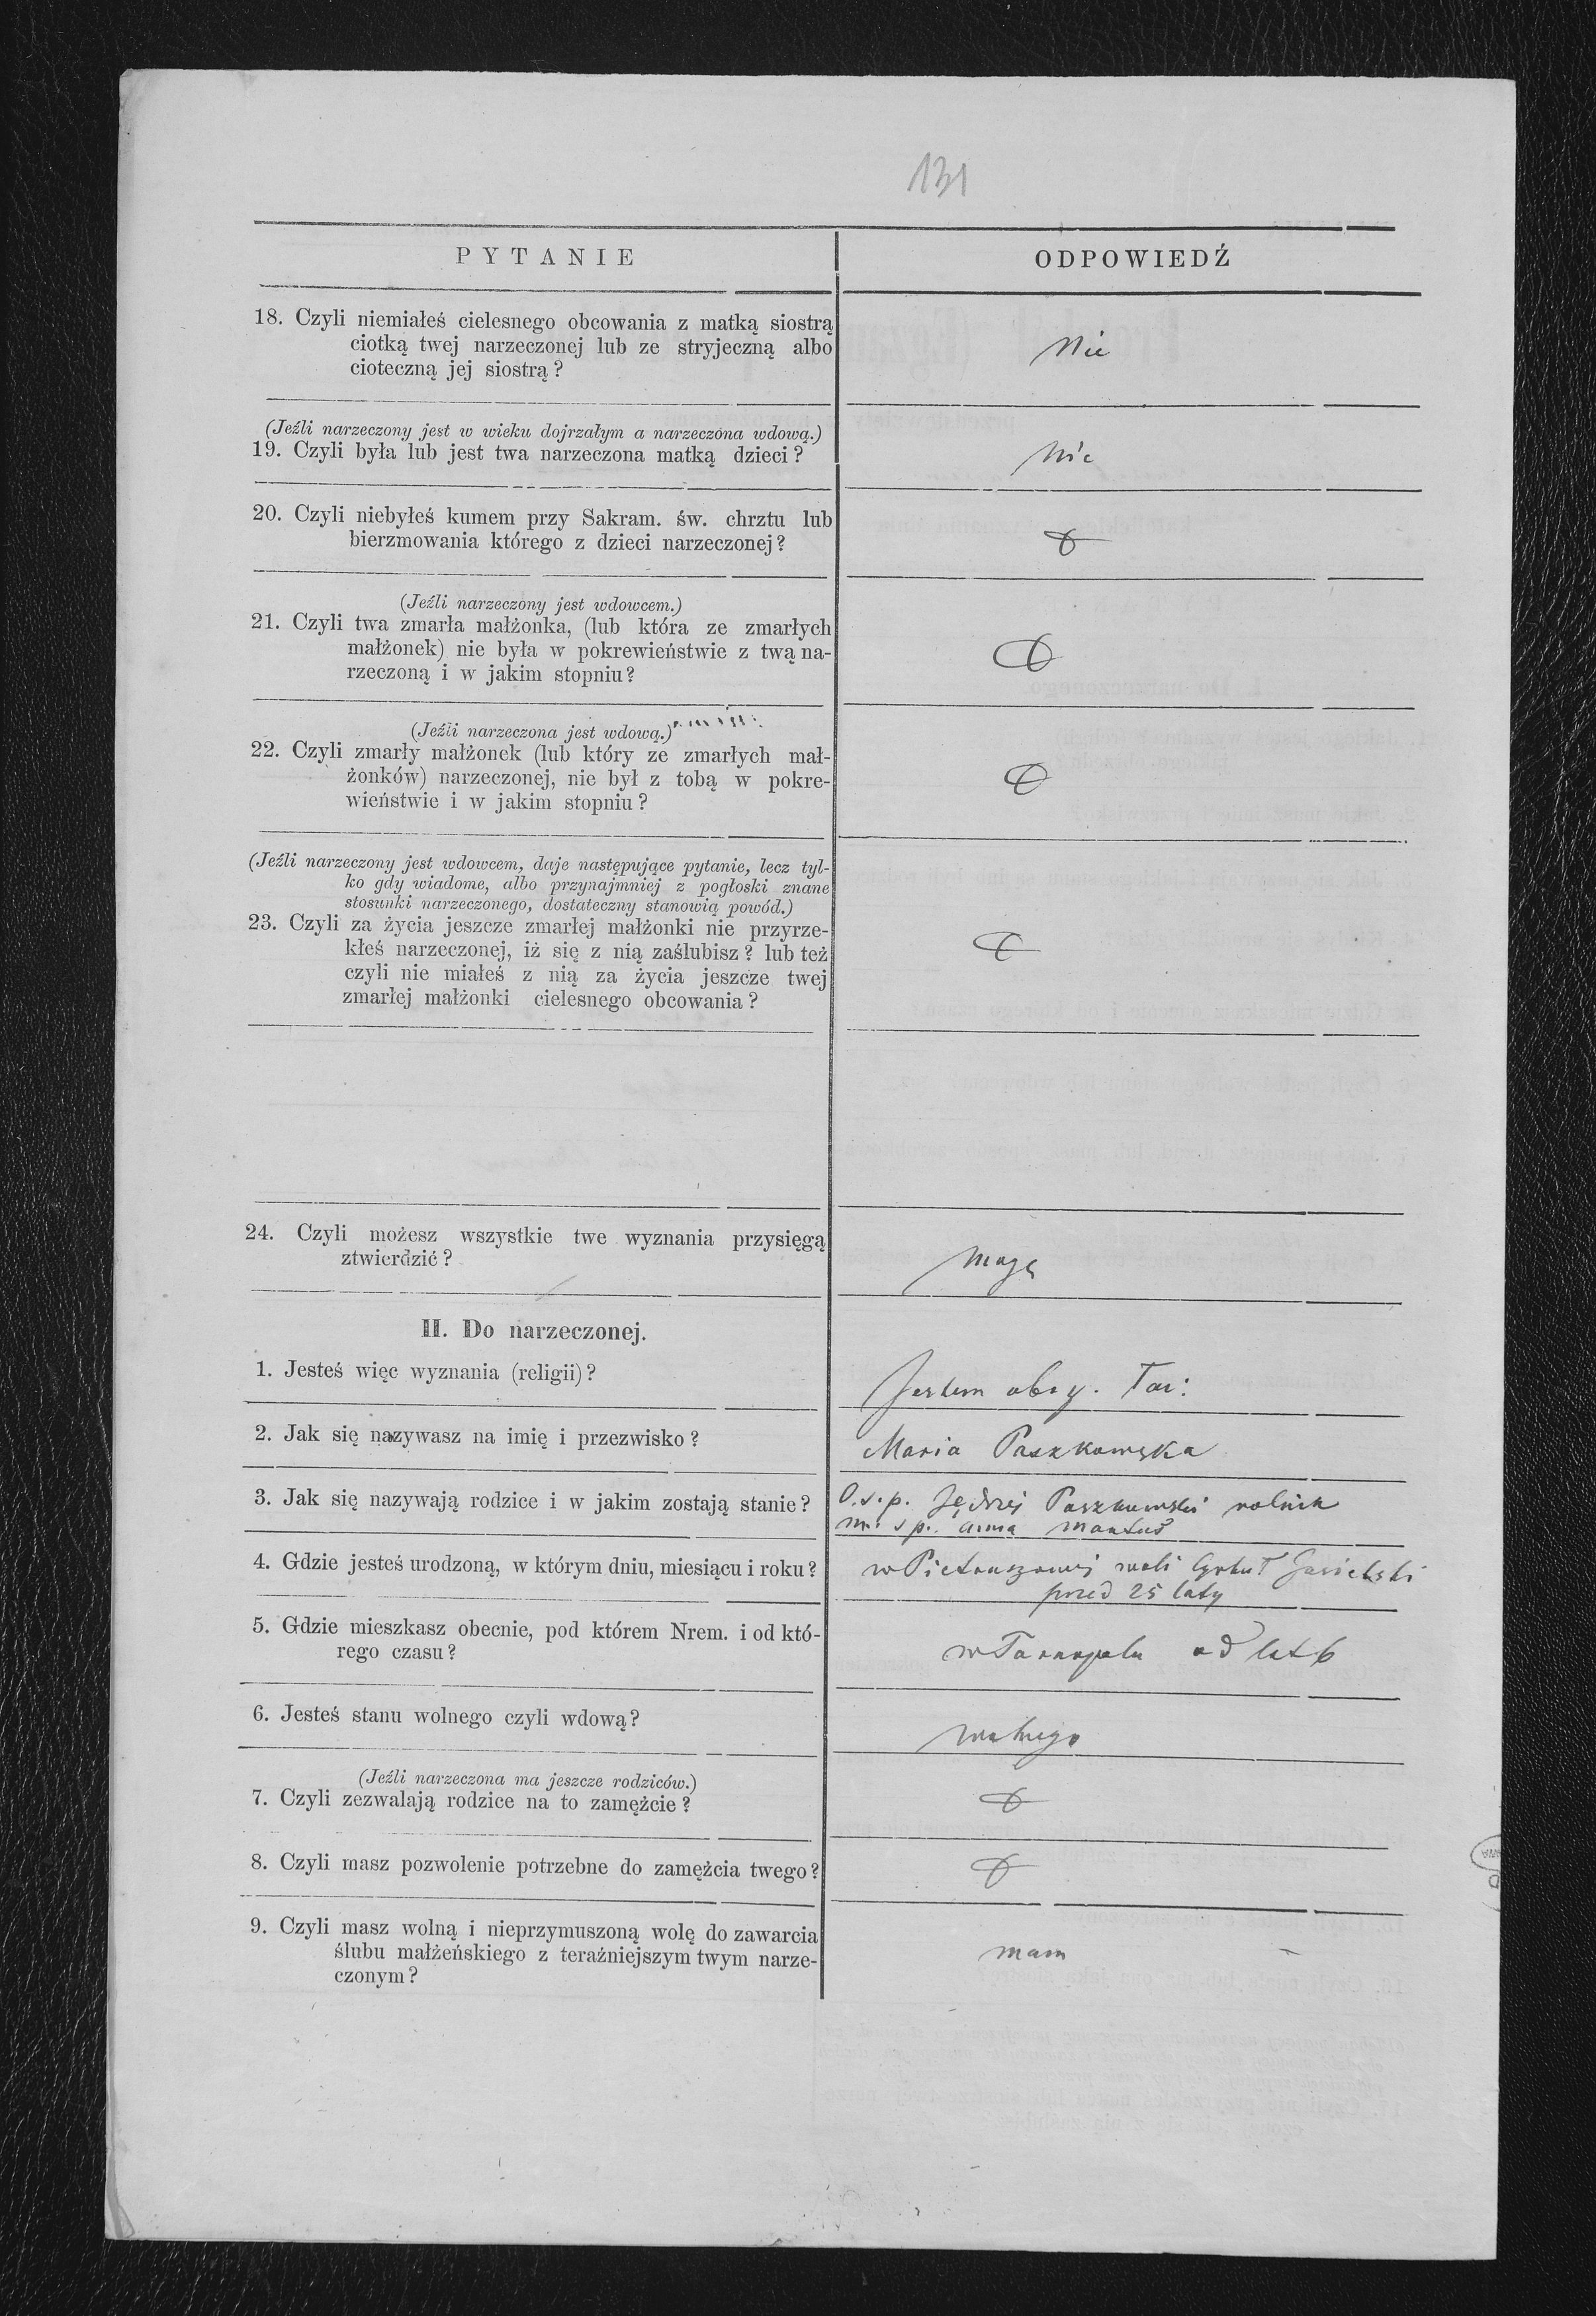 131
PYTANIE
ODPOWIEDŹ
18. Czyli niemiałeś cielesnego obcowania z matką siostrą
ciotką twej narzeczonej lub ze stryjeczną albo
cioteczną jej siostrą?
Nie
(Jeźli narzeczony jest w wieku dojrzałym a narzeczona wdową.)
19. Czyli była lub jest twa narzeczona matką dzieci?
Nie
20. Czyli niebyłeś kumem przy Sakram. św. chrztu lub
bierzmowania którego z dzieci narzeczonej?
(Jeźli narzeczony jest wdowcem.)
21. Czyli twa zmarła małżonka, (lub która ze zmarłych
małżonek) nie była w pokrewieństwie z twą na-
rzeczoną i w jakim stopniu?
(Jeźli narzeczona jest wdową.)
22. Czyli zmarły małżonek (lub który ze zmarłych mał-
żonków) narzeczonej, nie był z tobą w pokre-
wieństwie i w jakim stopniu?
(Jeźli narzeczony jest wdowcem, daje następujące pytanie, lecz tyl-
ko gdy wiadome, albo przynajmniej z pogłoski znane
stosunki narzeczonego, dostateczny stanowią powód.)
23. Czyli za życia jeszcze zmarłej małżonki nie przyrze-
kłeś narzeczonej, iż się z nią zaślubisz? lub też
czyli nie miałeś z nią za życia jeszcze twej
zmarłej małżonki cielesnego obcowania?
24. Czyli możesz wszystkie twe wyznania przysięgą
ztwierdzić?
Mogę
II. Do narzeczonej.
1. Jesteś więc wyznania (religii)?
Jestem obrz. łac:
2. Jak się nazywasz na imię i przezwisko?
Maria Paszkowska
3. Jak się nazywają rodzice i w jakim zostają stanie?
O. ś. p. Jędrzej Paszkowski rolnik
m. ś p. Anna
4. Gdzie jesteś urodzoną, w którym dniu, miesiącu i roku?
w Pietruszowej woli
przed 25 laty
5. Gdzie mieszkasz obecnie, pod którem Nrem. i od któ-
rego czasu?
w Tarnopolu od lat 6
6. Jesteś stanu wolnego czyli wdową?
wolnego
(Jeźli narzeczona ma jeszcze rodziców.)
7. Czyli zezwalają rodzice na to zamężcie?
8. Czyli masz pozwolenie potrzebne do zamężcia twego?
9. Czyli masz wolną i nieprzymuszoną wolę do zawarcia
ślubu małżeńskiego z teraźniejszym twym narze-
czonym?
mam